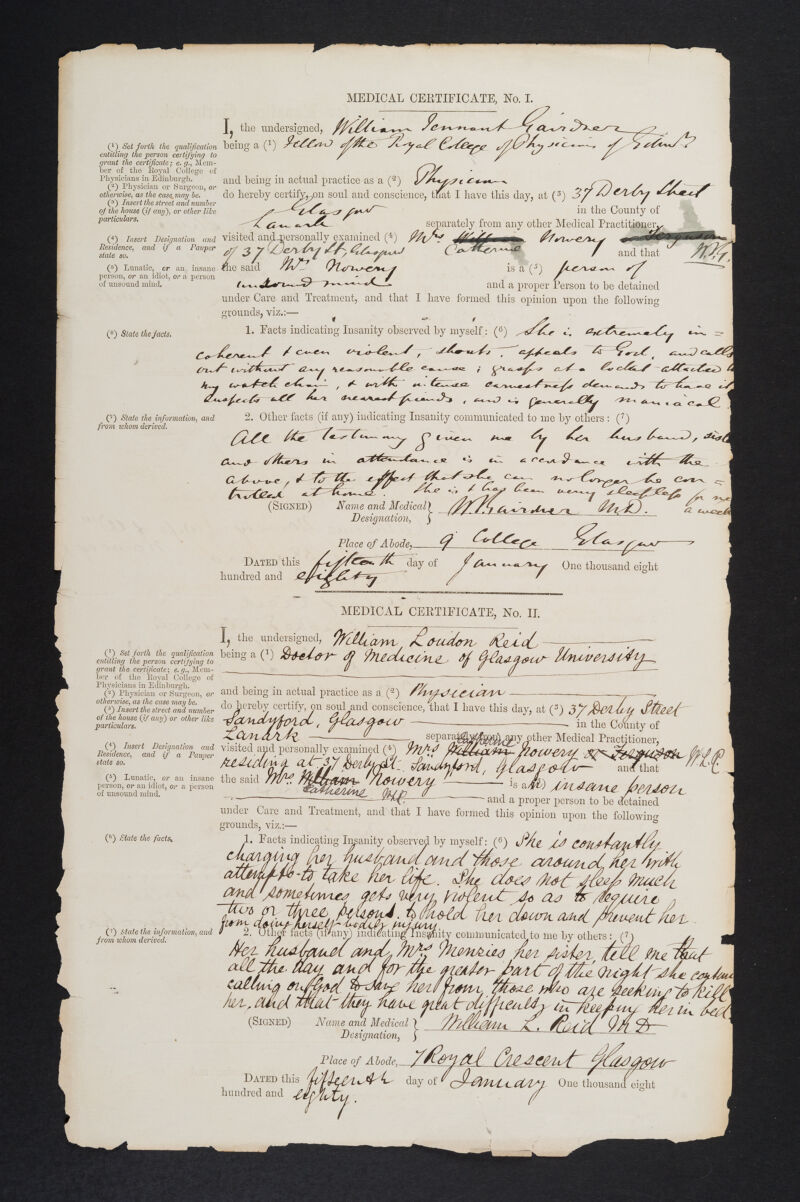 MEDICAL CERTIFICATE, No. I.
I, the undersigned, William Tennant Gairdner
being a (1) Fellow of the Royal College of Physicians of Edinr
and being in actual practice as a (2) Physician
do hereby certify, on soul and conscience, that I have this day, at (3) 37 Derby Street
Glasgow in the County of
Lanark separately from any other Medical Practitioner,
visited and personally examined (4) Mrs William Nowery or Ferguson
Catherine W.T.G.
of 37 Derby St, Glasgow and that
the said Mrs Nowery is a (5) person of
unsound mind and a proper Person to be detained
under Care and Treatment, and that I have formed this opinion upon the following
grounds, viz.:—
1. Facts indicating Insanity observed by myself: (6) She is extremely in=
coherent & even violent, shouts, appeals to God, and calls
out without any reasonable cause; grasps at a locket attached to
my watch chain, & with intense earnestness demands to have it
suspects all her nearest friends, and is generally maniacal.
2. Other facts (if any) indicating Insanity communicated to me by others: (7)
All the testimony given me by her husband,
and others in attendance is in accordance with the
above, & to the effect that she can no longer be con=
trolled at home. She is & has been very sleepless for
a week
(SIGNED) Name and Medical Designation, W T Gairdner M.D.
Place of Abode, 9 College Glasgow
DATED this fifteenth day of January One thousand eight
hundred and eighty
(1) Set forth the qualification
entitling the person certifying to
grant the certificate; e.g., Mem-
ber of the Royal College of
Physicians in Edinburgh.
(2) Physician or Surgeon, or
otherwise, as the case may be.
(3) Insert the street and number
of the house (if any), or other like
particulars.
(4) Insert Designation and
Residence, and if a Pauper
state so.
(5) Lunatic, or an insane
person, or an idiot, or a person
of unsound mind.
(6) State the facts.
(7) State the information, and
from whom derived.
MEDICAL CERTIFICATE, No. II.
I, the undersigned, William Loudon Reid
being a (1) Doctor of Medicine of Glasgow University
and being in actual practice as a (2) Physician
do hereby certify, on soul and conscience, that I have this day, at (3) 37 Derby Street
Sandyford, Glasgow in the County of
Lanark separately from any other Medical Practitioner,
Catherine
visited and personally examined (4) Mrs William Nowery or Ferguson W.L.R.
residing at 37 Derby St. Sandyford, Glasgow and that
the said Mrs William Nowery is a(5) insane person
Catherine WLR and a proper person to be detained
under Care and Treatment, and that I have formed this opinion upon the following
grounds, viz.:—
1. Facts indicating Insanity observed by myself: (6) She is constantly
charging her husband and those around her with
attempts to take her life. She does not sleep much
and sometimes gets very violent so as to require
two or three persons to hold her down and prevent her
from doing herself bodily injury.
2. Other facts (if any) indicating Insanity communicated to me by others: (7)
Her husband and Mrs Menzies her sister, tell me that
all the day and for the greater part of the night she
calling on God to save her from those who are seeking to kill
her, and that they have great difficulty in keeping her in bed
(SIGNED) Name and Medical Designation, William L. Reid M D
Place of Abode, 7 Royal Crescent Glasgow
DATED this fifteenth day of January One thousand eight
hundred and eighty.
(1) Set forth the qualification
entitling the person certifying to
grant the certificate; e.g., Mem-
ber of the Royal College of
Physicians in Edinburgh.
(2) Physician or Surgeon, or
otherwise, as the case may be.
(3) Insert the street and number
of the house (if any) or other like
particulars.
(4) Insert Designation and
Residence, and if a Pauper
state so.
(5) Lunatic, or an insane
person, or an idiot, or a person
of unsound mind.
(6) State the facts.
(7) State the information, and
from whom derived.